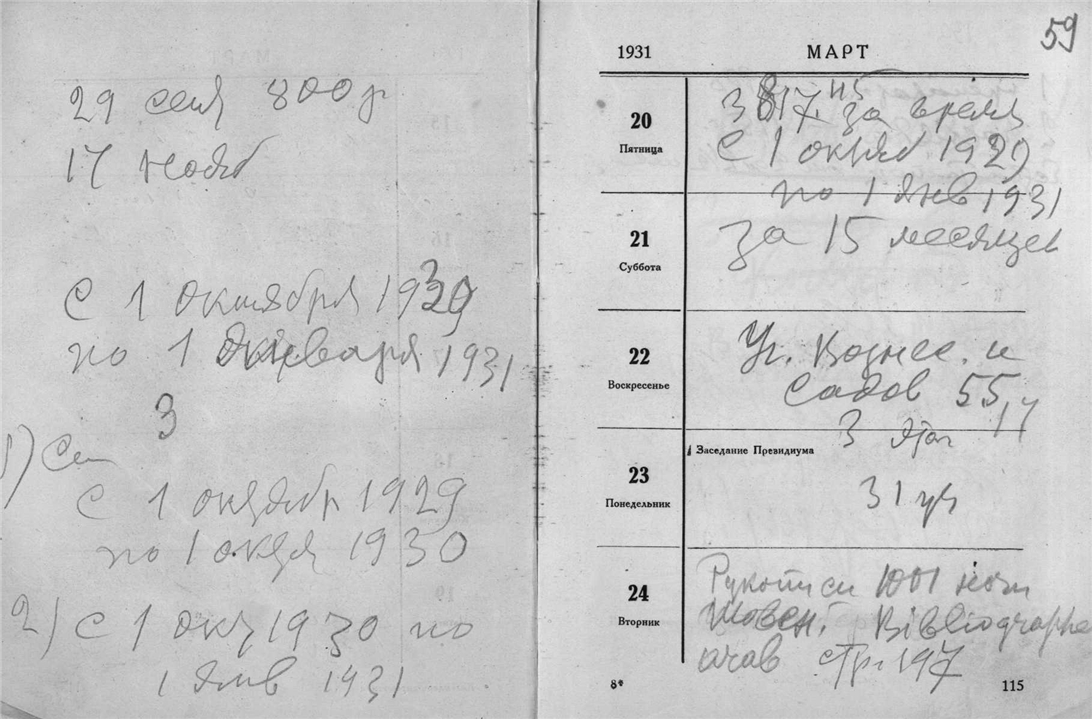 29 сент 800 р
17 нояб
с 1 октября 1930
по 1 января 1931
3
1) Сен
с 1 октябр 1929
по 1 октя 1930
2) с 1 окт 1930 по
1 янв 1931
59
1931 МАРТ
3817 за время
20
Пятница
с 1 октяб 1929
по 1 янв 1931
21
Суббота
за 15 месяцев
22
Воскресенье
Уг. Вознес. и
Садов 55, 17
3 этаж
Заседание Президиума
23
Понедельник
31
24
Вторник
Рукописи 1001 ночи
Шовен. Bibliographie
араб стр. 197
8* 115